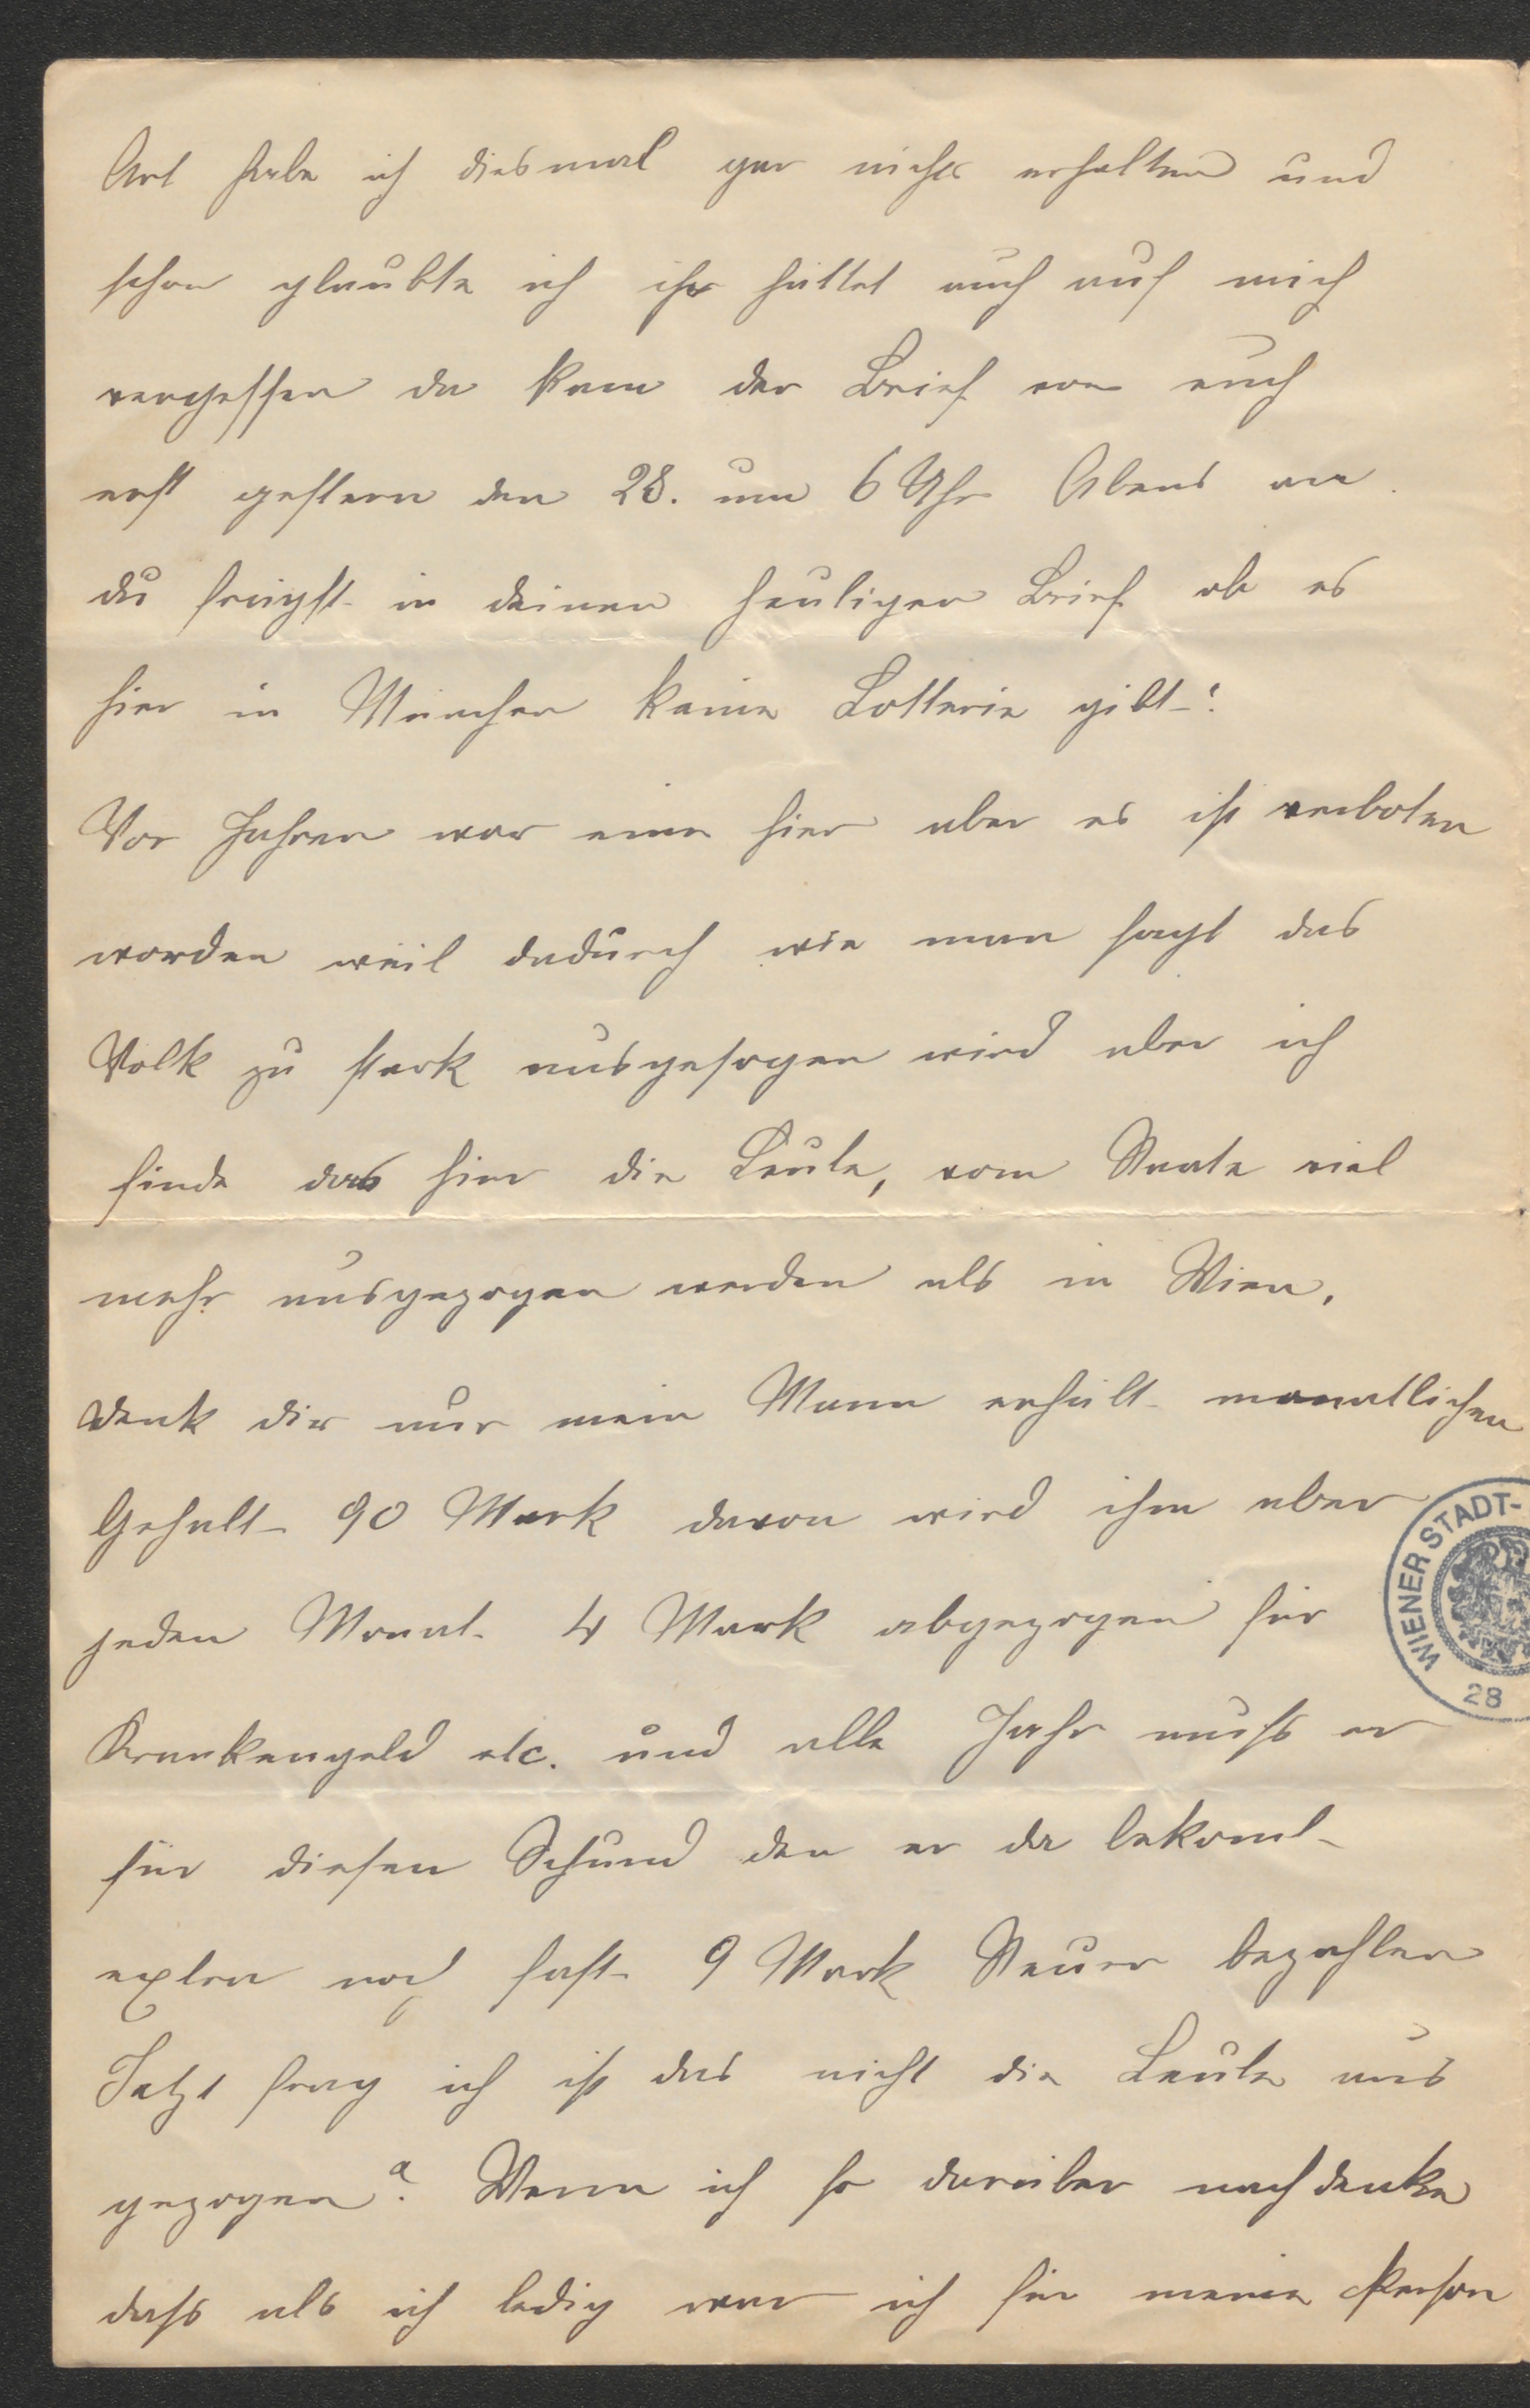 Art habe ich diesmal gar nichts erhalten und
schon glaubte ich ihr hättet auch auf mich
vergessen da kam der Brief von euch
erst gestern den 28. um 6 Uhr Abens an.
du frägst in deinen heutigen Brief ob es
hier in München keine Lotterie gibt?
Vor Jahren war eine hier aber es ist verboten
worden weil dadurch wie man sagt das
Volk zu stark ausgesogen wird aber ich
finde das hier die Leute, vom Staate viel
mehr ausgezogen werden als in Wien.
denk dir nur mein Mann erhält monatlichen
Gehalt 90 Mark davon wird ihm aber
jeden Monat 4 Mark abgezogen für
Krankengeld etc. und alle Jahr muß er
für diesen Schund den er da bekomt
extra noch fast 9 Mark Steuer bezahlen
Jetzt frag ich ist das nicht die Leute aus
gezogen? Wenn ich so darüber nach denke
daß als ich ledig war ich für meine Person
WIENER STADT-
28